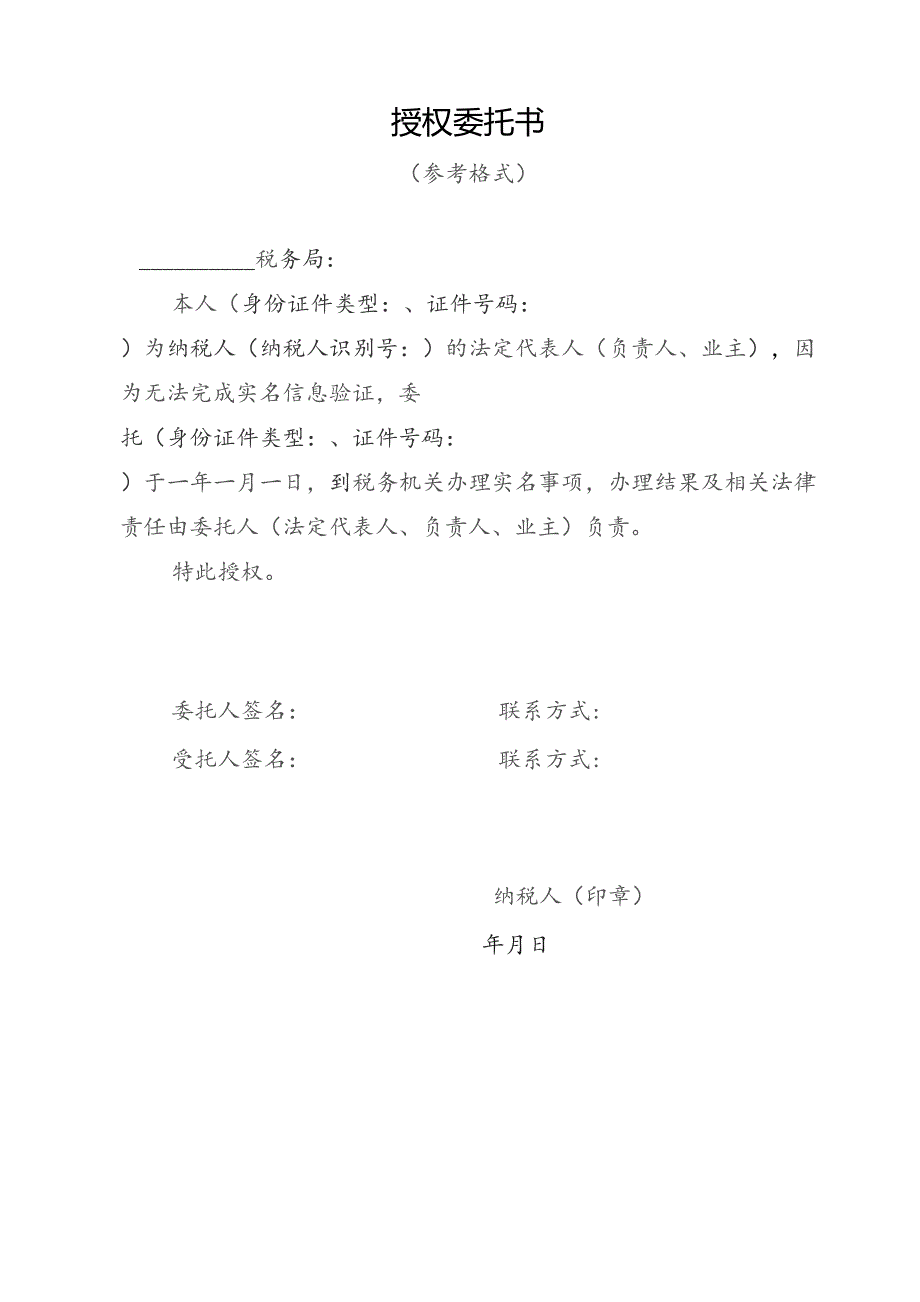 授权委托书
（参考格式）
__________税务局：
本人（身份证件类型：、证件号码：
）为纳税人（纳税人识别号：）的法定代表人（负责人、业主），因
为无法完成实名信息验证，委
托（身份证件类型：、证件号码：
）于一年一月一日，到税务机关办理实名事项，办理结果及相关法律
责任由委托人（法定代表人、负责人、业主）负责。
特此授权。
委托人签名： 联系方式：
受托人签名： 联系方式：
纳税人（印章）
年月日